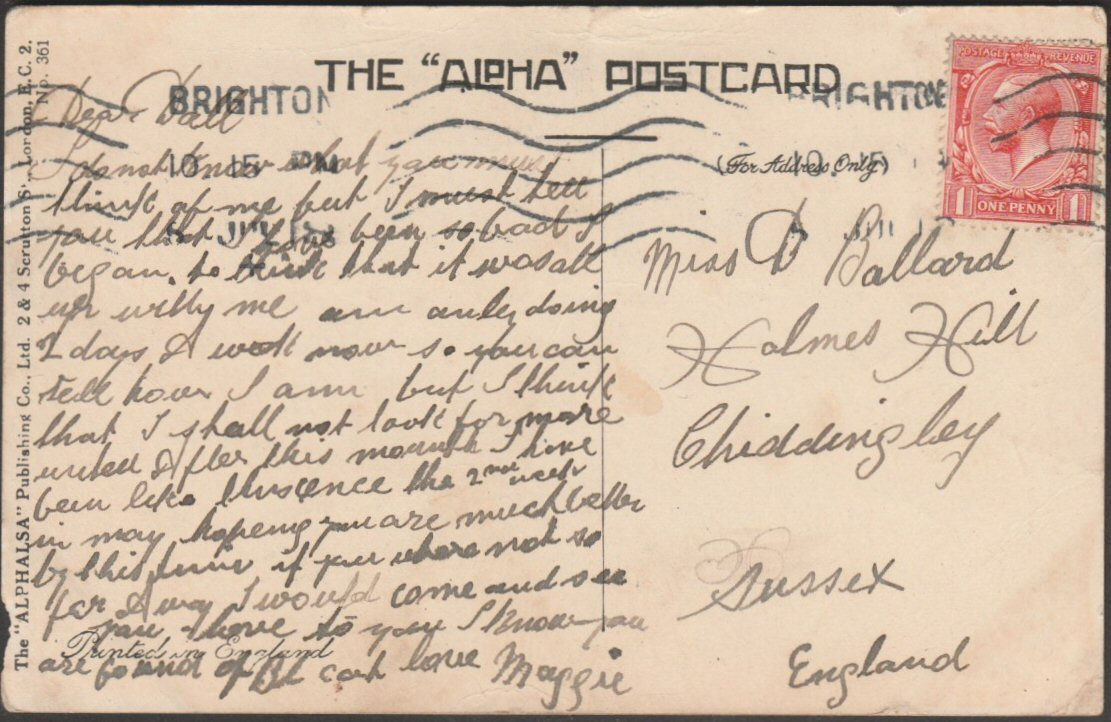 THE "ALPHA" POSTCARD
BRIGHTON
BRIGHTON
10 15 PM
10 15
(For Address Only)
POSTAGE REVENUE
1 ONE PENNY 1
The "ALPHALSA" Publishing Co., Ltd. 2 & 4 Scrutton St., London, E.C. 2.
No. 361
Dear
I do not know what you must
think of me but I must tell
you that I have been so bad I
began to think that it was all
up withy me am only doing
2 days A week now so you can
tell how I am but I think
that I shall not look for more
untell After this mounth I have
been like thiscence the 2nd week
in may hopeing you are much better
by this time if you where not so
far A way I would come and see
you have to you I know you
are found of cat love Maggie
Printed in England
Miss D Ballard
Holmes Hill
Chiddingley
Sussex
England